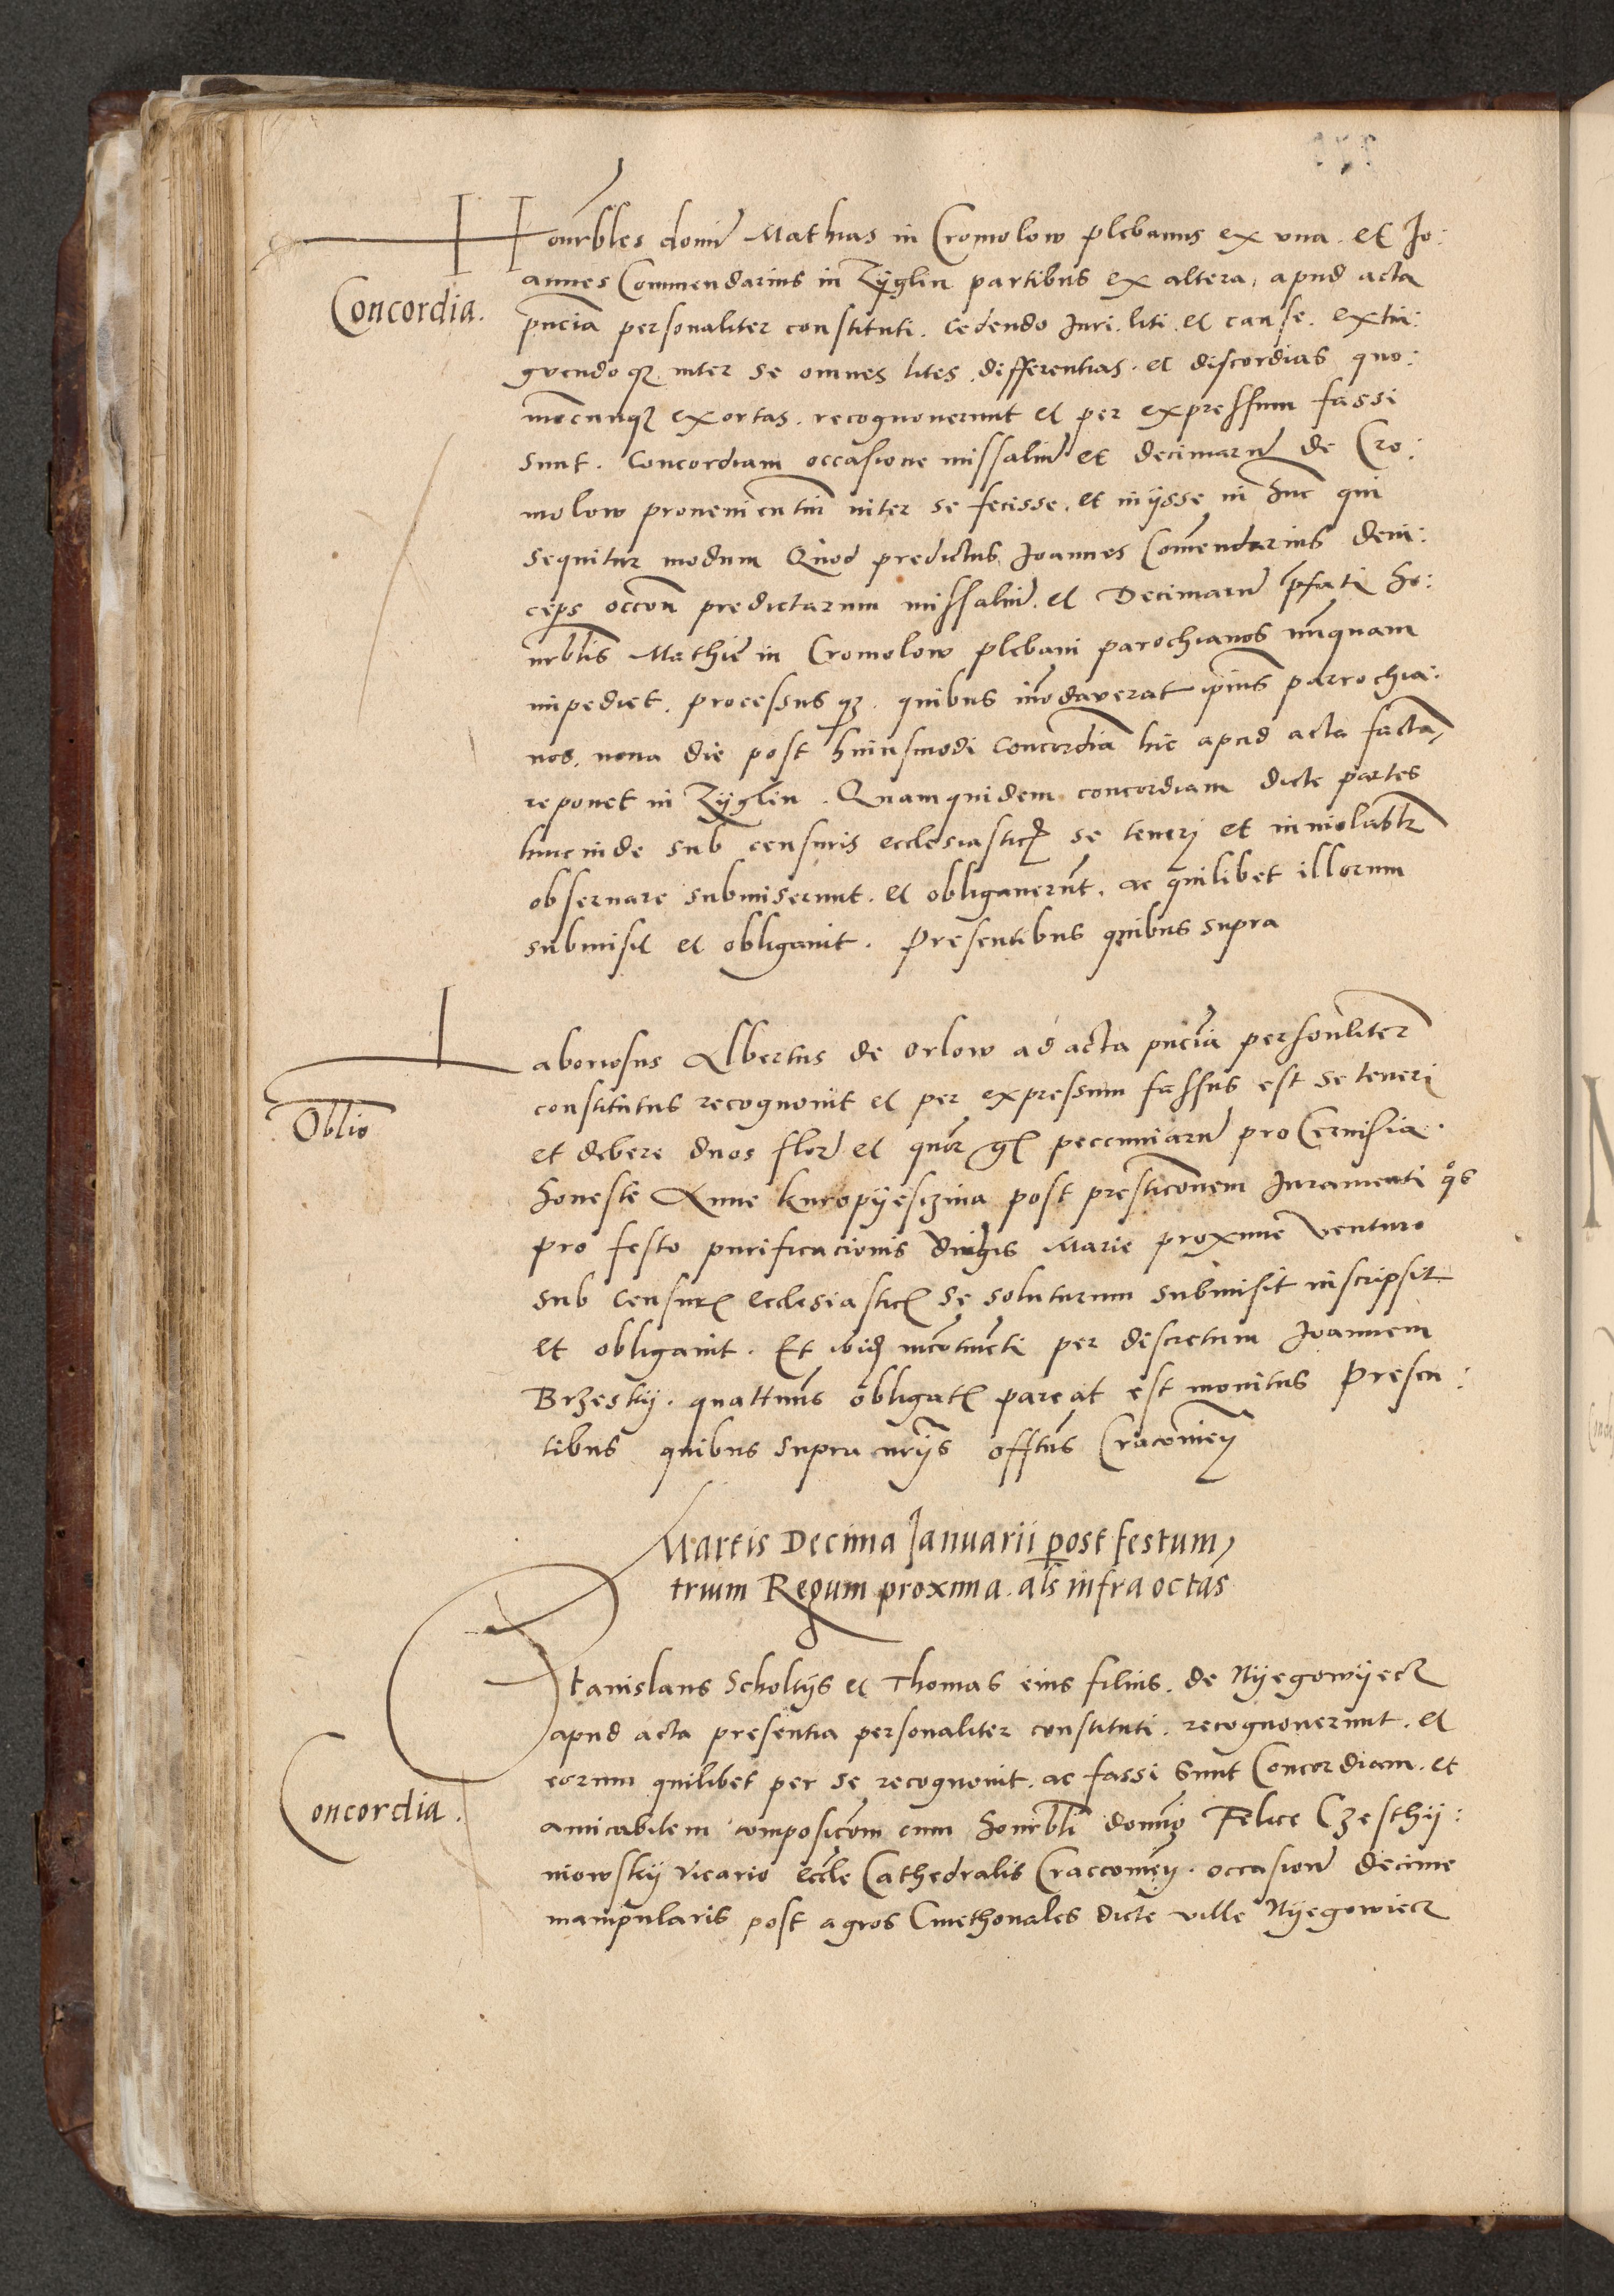 Honrbles domi Mathias in Cromolow plebanus ex vna. et Jo:
annes Commendarius in Zÿglin partibus ex altera, apud acta
Concordia.
pncia personaliter constituti. cedendo Juri. liti et cause. extin:
guendoqz inter se omnes lites differentias. et discordias quo:
mocunqz exortas. recognouerunt et per expressum fassi
sunt. Concordiam occasione missaliu et decimaru de Cro:
molow prouenientiu inter se fecisse. et inijsse in hunc qui
sequitur modum Quod predictus Joannes Comendarius dein:
ceps occon predictarum missaliu. et Decimaru pfati ho:
nrblis Mathie in Cromolow plebani parochianos nunquam
impediet. processus qz. quibus inodauerat ipius parrochia:
nos, nona die post huiusmodi concordia hic apud acta facta,
reponet in Zÿglin. Quamquidem concordiam dicte partes
hincinde sub censuris ecclesiastic se teneri et inuiolabtr
obseruare submiserunt. et obligauerut. ac quilibet illorum
submisit et obligauit. Presentibus quibus supra
Laboriosus Albertus de Orlow ad acta pncia personliter
constitutus recognouit et per expressum fassus est se teneri
Oblio
et debere duos flor et quor gr peccuniaru pro Ceruisia.
honeste Anne Kuropÿesczina post presticonem Juramenti qos
pro festo purificacionis Marie proxime venturo
sub censuris ecclesiastic se soluturum submisit inscripsit
et obligauit. Et ibid incontineti per discretum Joannem
Brzeskÿ. quattinus obligat pareat est monitus Presen:
tibus quibus supra nrijs offtus Cracouien
Martis Decima Januarii post festum
trium Regum proxima. als infra octas
Stanislaus Scholtÿs et Thomas eius filius. de Nÿegowÿecz
apud acta presentia personaliter constituti. recognouerunt. et
eorum quilibet per se recognouit. ac fassi sunt Concordiam. et
Concordia.
amicabilem composicom cum honrbli domno Felice Czesthÿ:
niowskÿ vicario eccle Cathedralis Craccouien. occasione decime
manipularis post agros Cmethonales dicte ville Nÿegowiecz